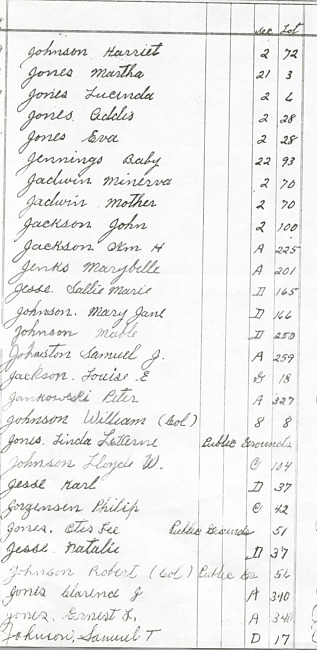 Sec Lot
Johnson Harriet 2 72
Jones Martha 21 3
Jones Lucinda 2 6
Jones. Addis 2 28
Jones Eva 2 28
Jennings Baby 22 93
Jadwin Minerva 2 70
Jadwin Mother 2 70
Jackson John 2 100
Jackson Wm H A 225
Jenks Marybelle A 201
Jesse. Sallie Marie D 165
Johnson. Mary Jane D 166
Johnson D 250
Johnston Samuel J. A 259
Jackson. Louise E G 18
Jankowski Peter A 327
Johnson William (Col) 8 8
Jones. Linda Public Grounds
Johnson Lloyde W. C 104
Jesse Karl D 37
Jorgensen Philip C 42
Jones. Otis Lee Public Grounds 51
Jesse Natalie D 37
Johnson Robert (Col) Public Gr. 56
Jones Clarence J A 340
Jones. Ernest L. A 340
Johnson, Samuel T D 17